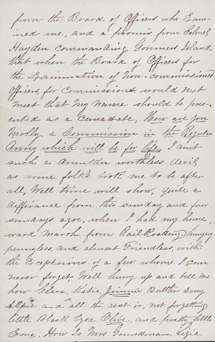 from the Board of Officers who Exam-
ined me, and a promise from Colonel
Hayden commanding Governors Island
that when the Board of Officers for
the Examination of Non-commissioned
officers for Commissions would next
meet that my name should be pres-
ented as a Candidate, Now are you
Molly, a Commission in the Regular
Army which will be for life, I aint
such a worthless devil
as some folks took me to be after
all, Well time will show, quite a
differance from this sunday and few
sundays ago, when I took my home
ward march from hungry
pennyless, and almost Friendless with
the Exceptions of a few whom I can
never forget, Well hurry up and tell me
how Clara, Katie, Jimmie
and all the rest is, not forgetting
little Black Eyed Olive, and pretty little
How is Mrs Lizzie